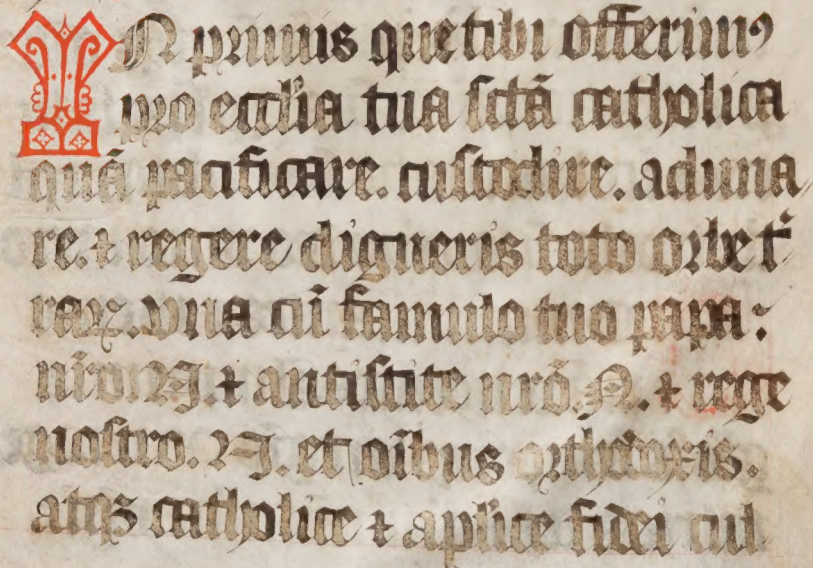 IN primis que tibi offerimꝯ
pro eccl̄ia tua sctā catholica
quā pacificare. custodire. aduna
re. ⁊ regere digneris toto orbe t̓
rarꝝ. vna cū famulo tuo papa
nr̄o N. ⁊ antistite nrō. N. ⁊ rege
nostro. N. et oībus orthodoxis.
atqꝫ catholice ⁊ apl̄ice fidei cul